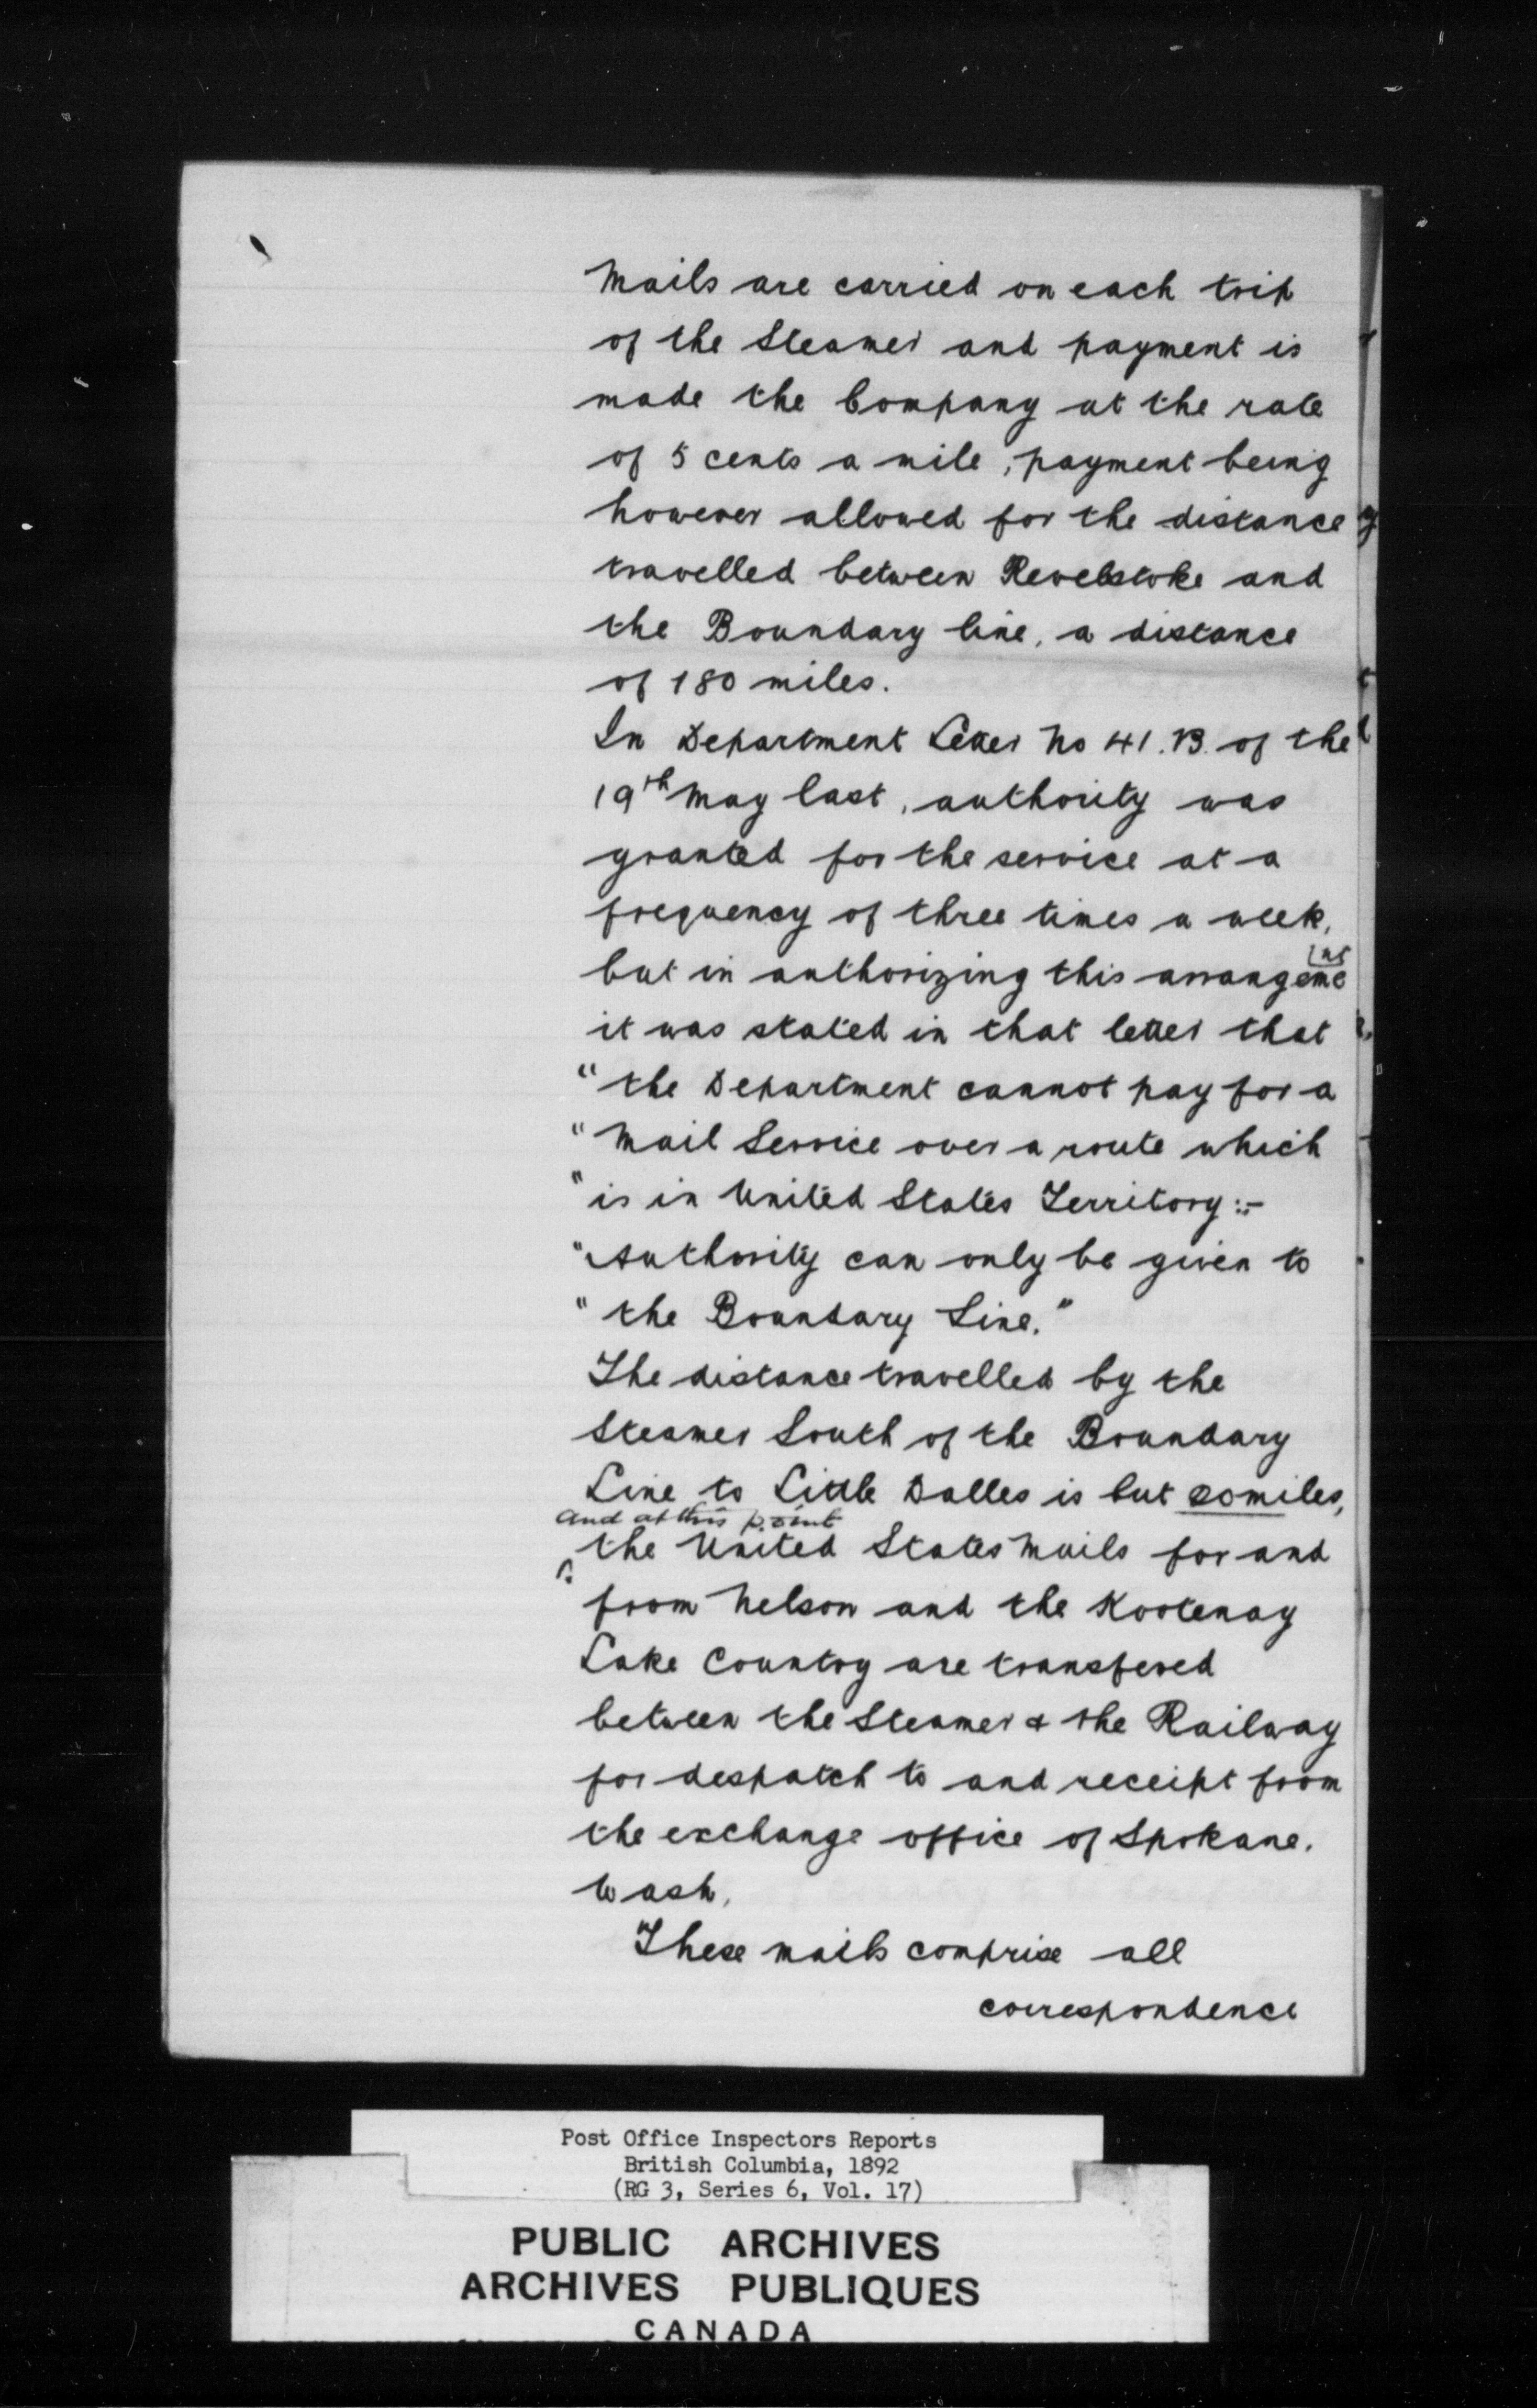 Mails are carried on each trip
of the Steamer and payment is
made the Company at the rate
of 5 cents a mile, payment being
however allowed for the distance
travelled between Revelstoke and
the Boundary line, a distance
of 180 miles.
In Department Letter No 41.B. of the
19th May last, authority was
granted for the service at a
frequency of three times a week,
but in authorizing this arrangement
it was stated in that letter that
"the Department cannot pay for a
"Mail Service over a route which
"is in United States Territory:-
"Authority can only be given to
"the Boundary Line."
The distance travelled by the
Steamer South of the Boundary
Line to Little Dalles is but 20 miles,
and at this point
the United States Mails for and
from Nelson and the Kootenay
Lake Country are transfered
between the Steamer & the Railway
for despatch to and receipt from
the exchange office of Spokane.
Wash,
These mails comprise all
correspondence
Post Office Inspectors Reports
British Columbia, 1892
(RG 3, Series 6, Vol. 17)
PUBLIC ARCHIVES
ARCHIVES PUBLIQUES
CANADA